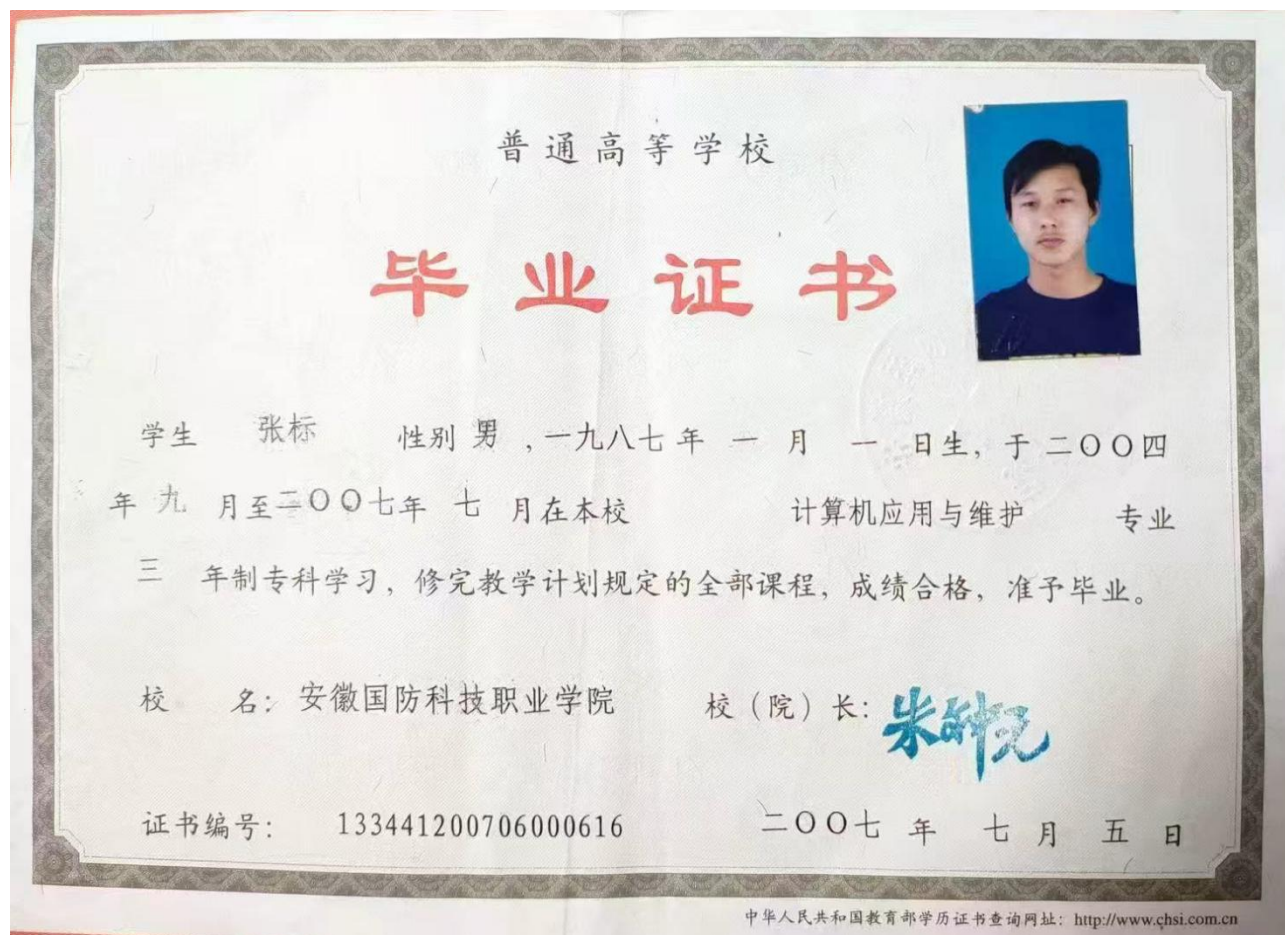 普通高等学校
毕业证书
学生 张标 性别 男 ，一九八七年 一 月 一 日生，于 二〇〇四
年 九 月至二〇〇七年 七 月在本校 计算机应用与维护 专业
三 年制专科学习，修完教学计划规定的全部课程，成绩合格，准予毕业。
校 名：安徽国防科技职业学院 校（院）长：
证书编号： 133441200706000616 二〇〇七 年 七 月 五 日
中华人民共和国教育部学历证书查询网址：http://www.chsi.com.cn